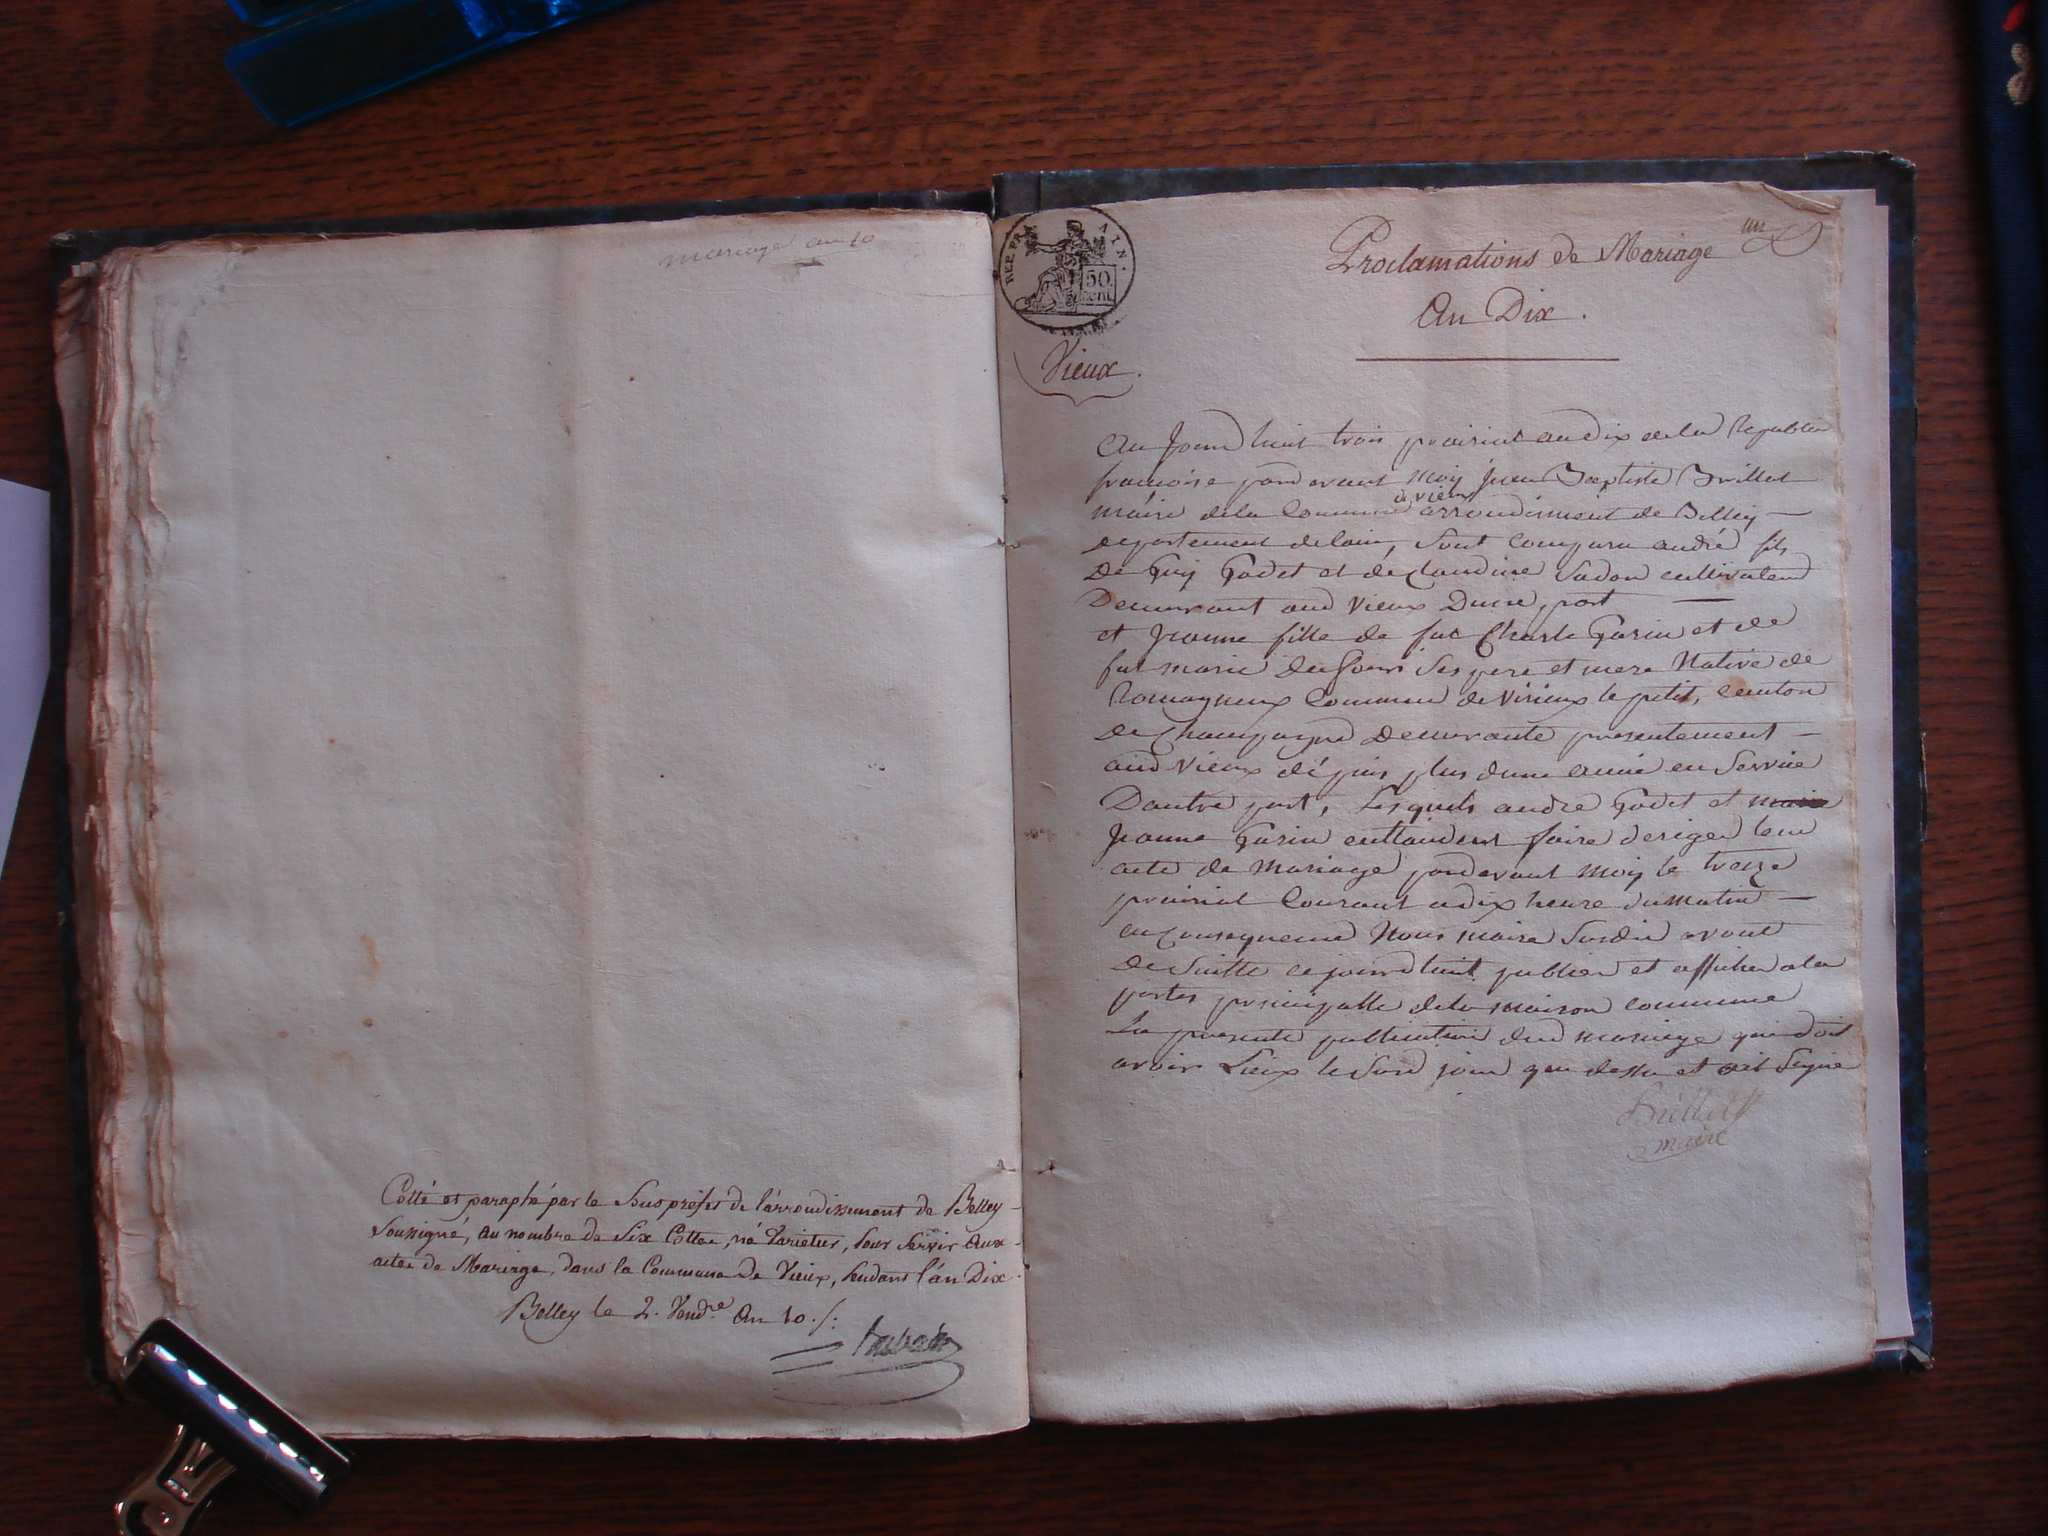 mariages an 10
Cotté et paraphé par le Sous préfet de l'arrondissement de Belley
Soussigné, au nombre de Six Cottes, né Varietur, pour Servir aux
actes de Mariage, dans la Commune de Vieux, pendant l'an Dix.
Belley le 2. Vend.re An 10./.
REP. FRA
50
cent
Vieux.
un
Proclamations de Mariage
An Dix.
Au Jourd huit trois prairial an dix de la Republice
francoise pard evant moy Jean Baptiste Brillat
de vieux
maire dela Commune arrondisment de Belley
departement delain, Sont Comparu andré fils
De Guy Godet et de Claudine Sadon cultivateur
Demeurant aud Vieux Dune part
et Jeanne fille de fut Charle Garin et de
fut marie Ses pere et mere Native de
Romagneux Commune de Virieux le petit, Canton
de Champagne Demeurante presentement
aud Vieux dépuis plus dune année en Service
Dautre part, Lesquels andre Godet et
Jeanne Garin entlandent faire deriger leur
acte de Mariage pard evant moy le treize
prairial Courant a dix heure du matin
en Consequence Nous maire Susdit avont
de Suitte ce jourd huit publier et afficher a la
portes principalle dela maison commune
La presente publication dud mariage qui doit
avoir Lieux le Susd jour que dessu et Signé
Brillat
maire